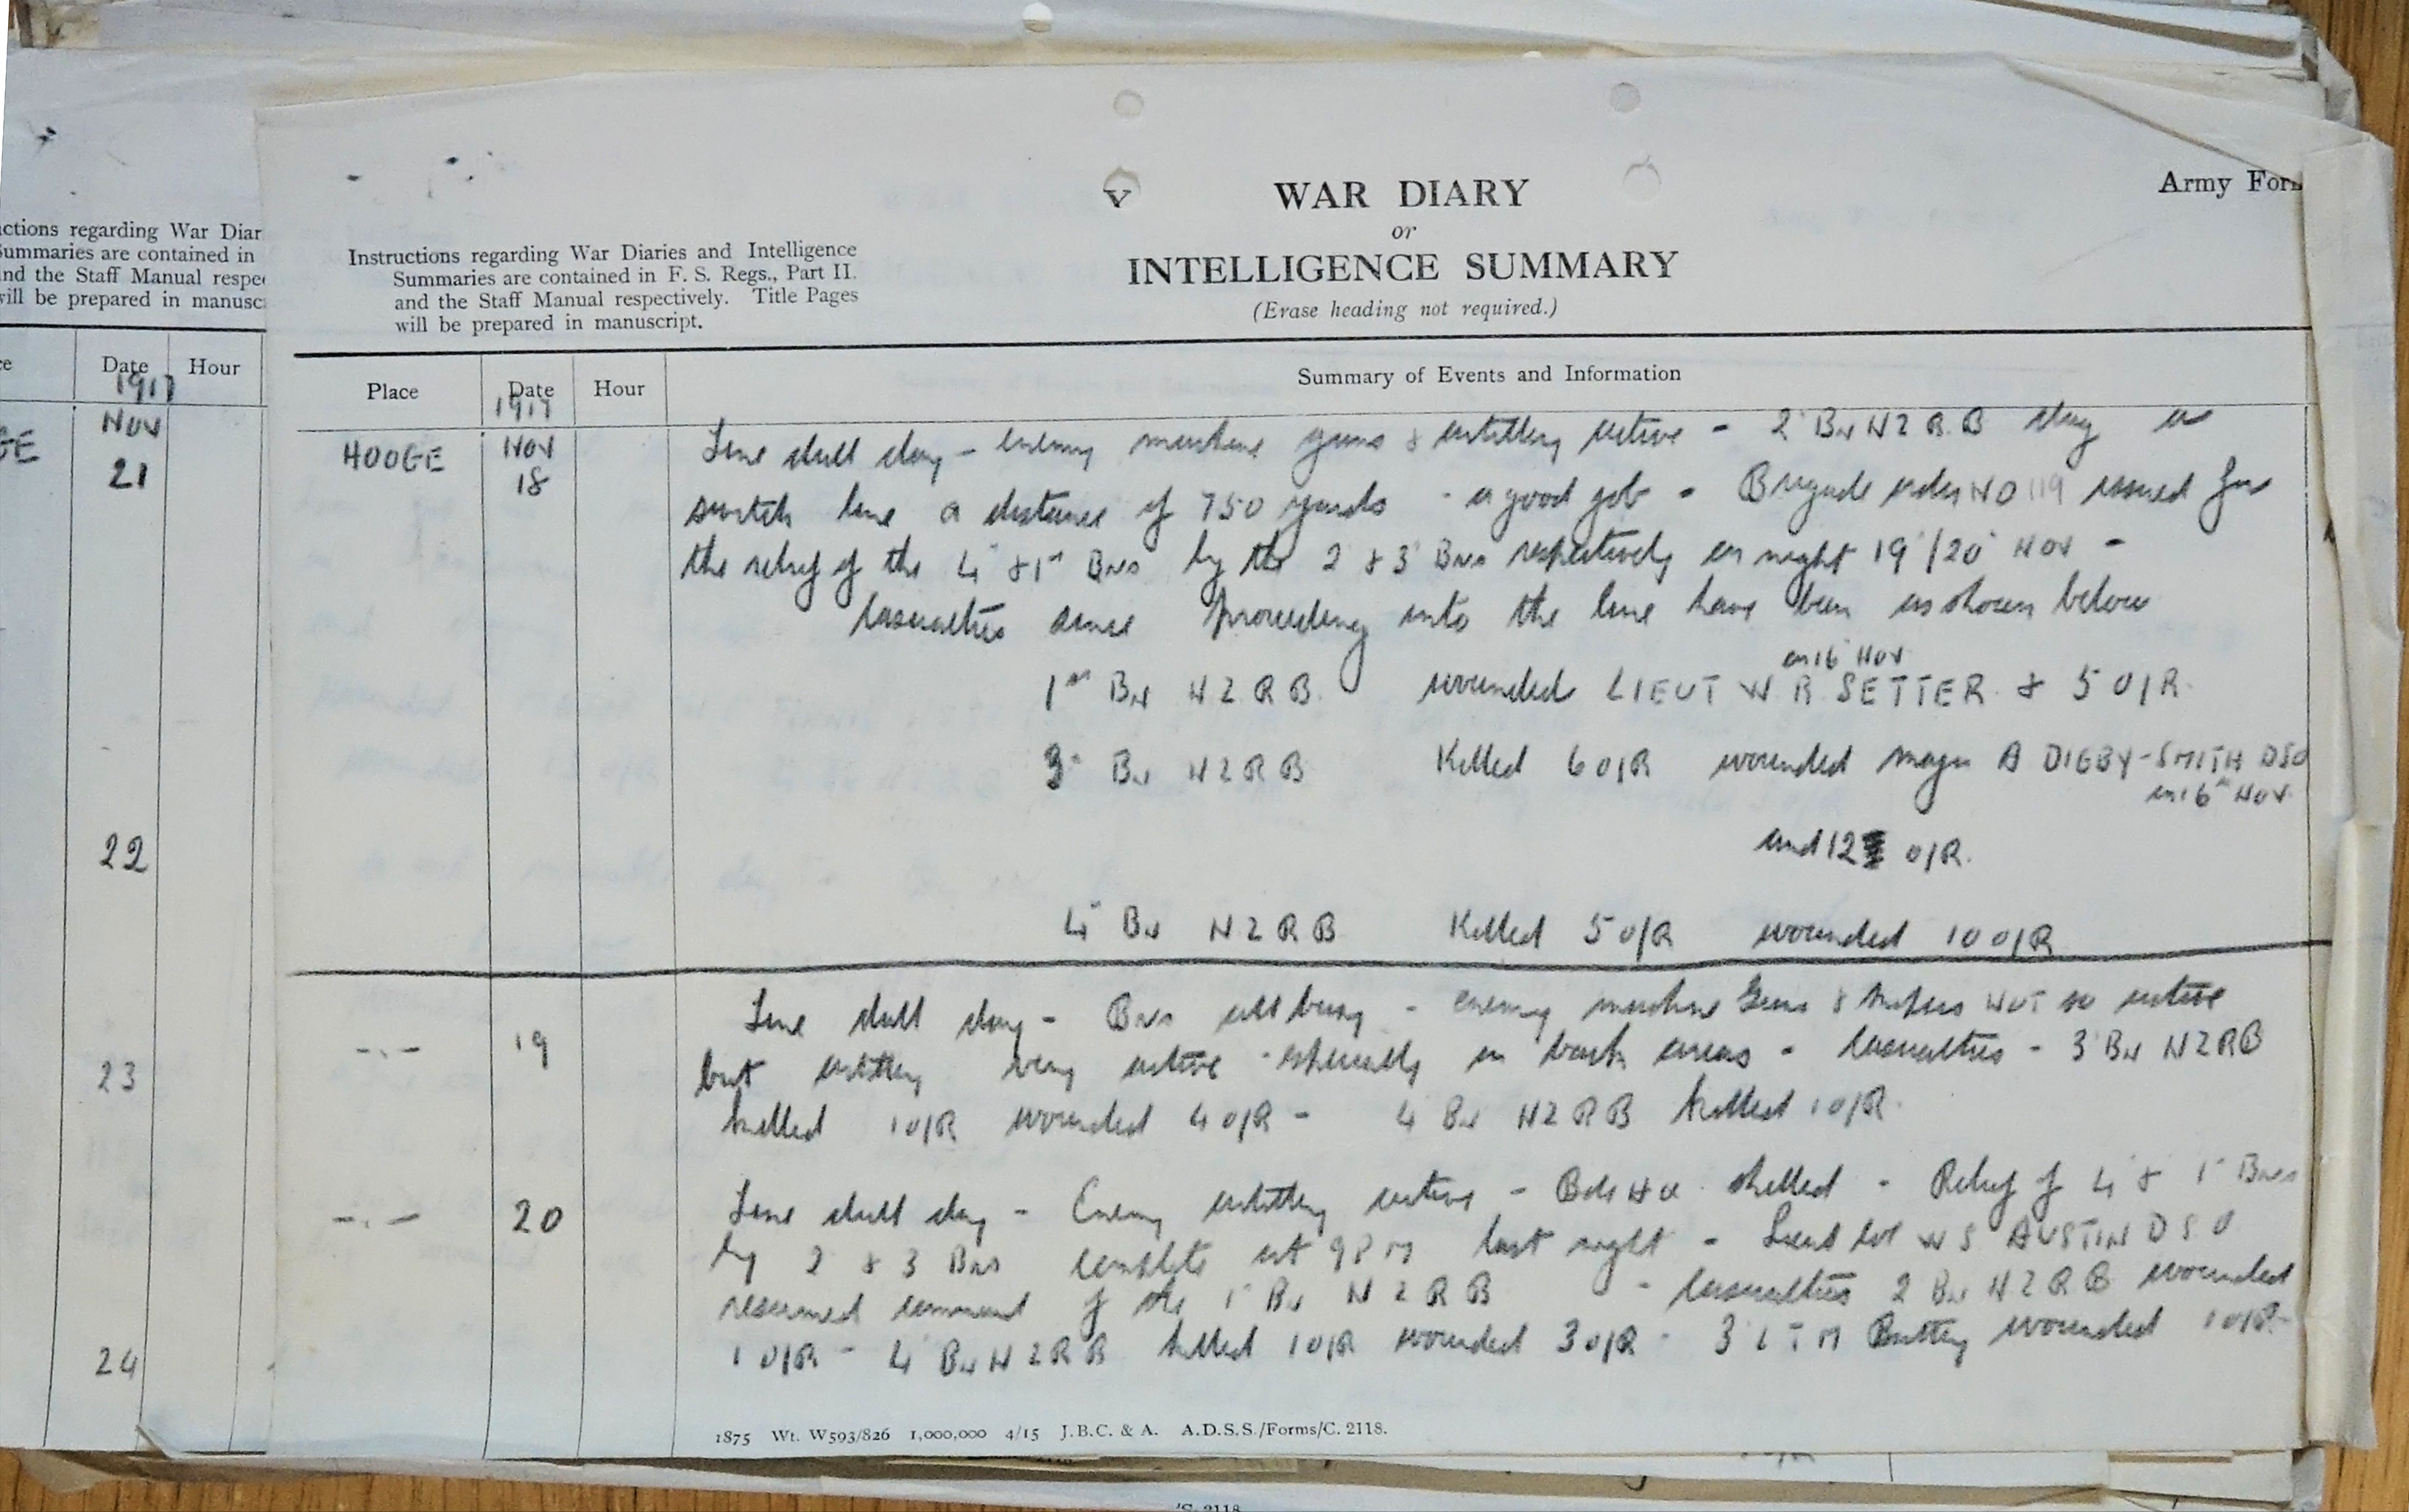 ctions regarding War Diar
Summaries are contained in
and the Staff Manual respe
will be prepared in manusc
Date
Hour
1917
Nov
GE
21
22
23
24
V
WAR DIARY
or
INTELLIGENCE SUMMARY
(Erase heading not required.)
Army For
Instructions regarding War Diaries and Intelligence
Summaries are contained in F. S. Regs., Part II.
and the Staff Manual respectively. Title Pages
will be prepared in manuscript.
Place
Date
Hour
Summary of Events and Information
1917
HOOGE
NOV
18
Fine dull day - enemy machine guns & artillery active - 2 Bn NZRB dug a
switch line a distance of 750 yards - a good job - Brigade order NO 119 issued for
the relief of the 4 & 1st Bns by the 2 & 3 Bns respectively on night 19/20 NOV -
Casualties since proceeding into the line have been as shown below
on 16 Nov
1st Bn NZRB wounded LIEUT W R SETTER & 5 O/R
3 Bn NZRB Killed 6 O/R wounded major A DIGBY-SMITH DSO
on 16th Nov
and 12 O/R.
4 Bn NZRB Killed 5 O/R wounded 10 O/R
-.-
19
Fine dull day - Bns all busy - enemy machine Guns & snipers NOT so active
but artillery very active - especially on back areas - Casualties - 3 Bn NZRB
killed 1 O/R wounded 4 O/R - 4 Bn NZRB killed 1 O/R.
-.-
20
Fine dull day - Enemy artillery active - Bde HQ shelled - Relief of 4 & 1 Bns
by 2 & 3 Bns complete at 9 PM last night - Lieut Col W S AUSTIN DSO
resumed command of the 1 Bn NZRB - Casualties 2 Bn NZRB wounded
1 O/R - 4 Bn NZRB killed 1 O/R wounded 3 O/R - 3 LTM Battery wounded 1 O/R -
1875 Wt. W593/826 1,000,000 4/15 J.B.C. & A. A.D.S.S./Forms/C. 2118.